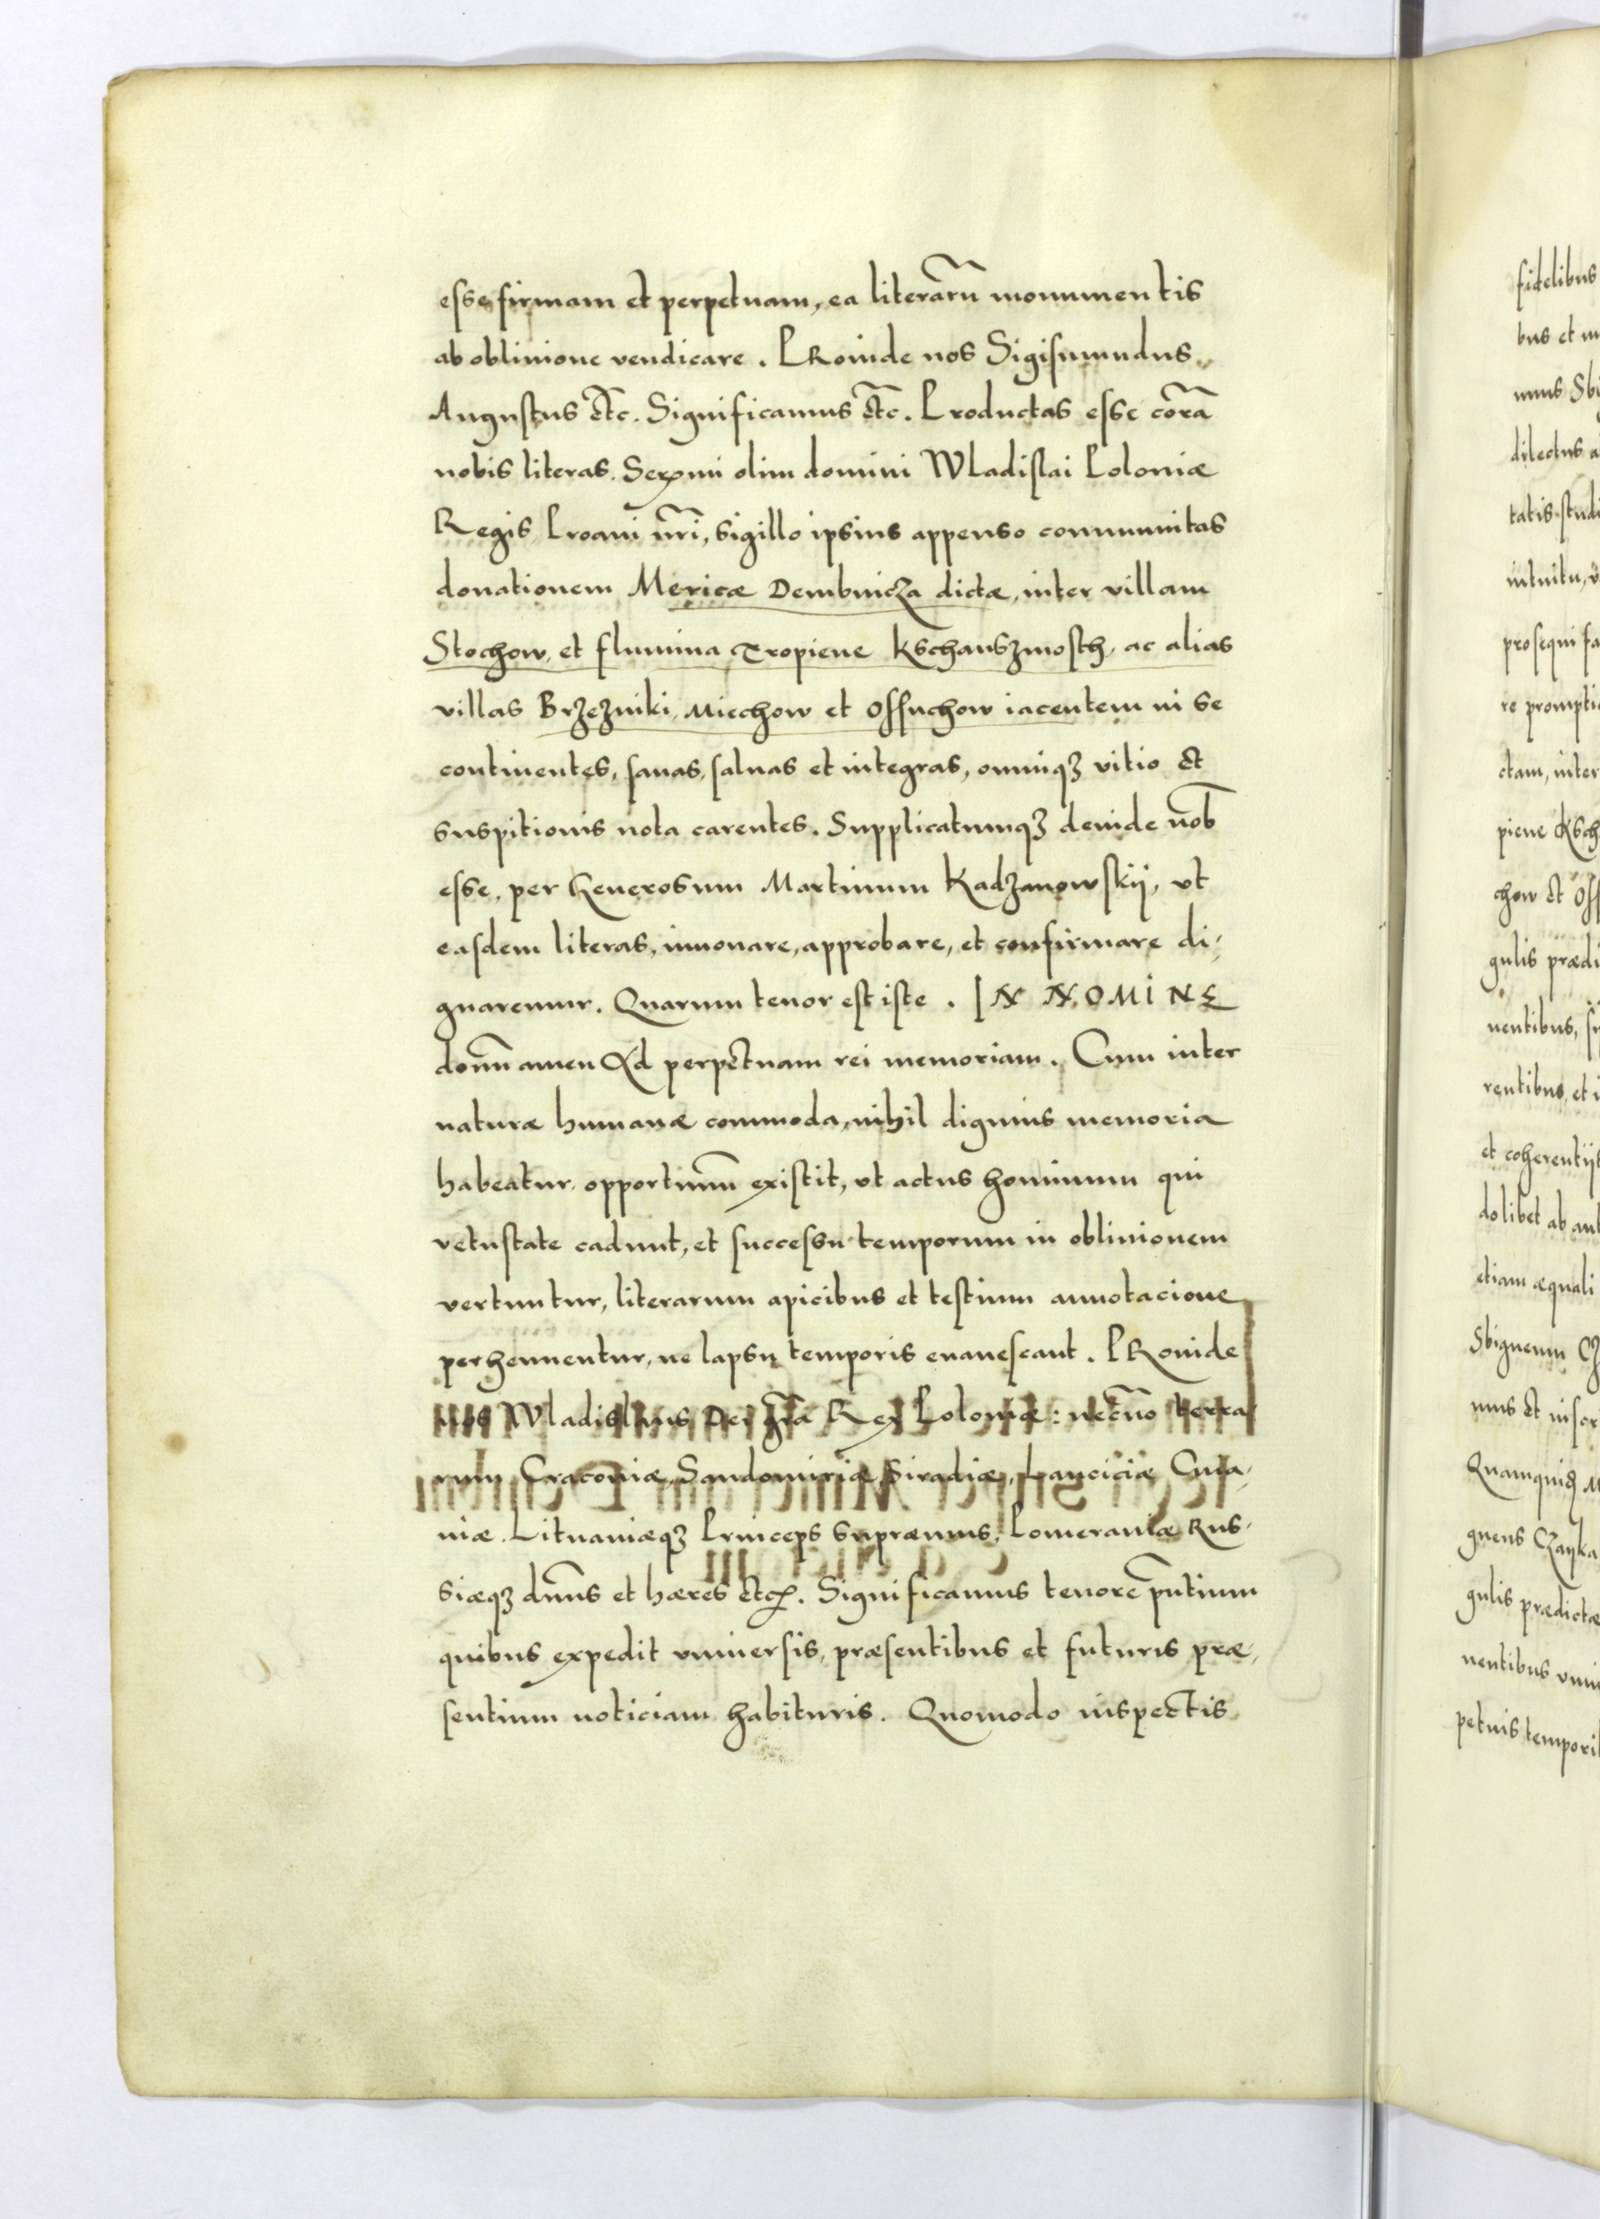 esse firmam et perpetuam, ea literarũ monumentis
ab obliuione vendicare. PRoinde nos Sigismundus
Augustus etc̃. Significamus etc̃. Productas esse corã
nobis literas. Serꝫmi olim domini Wladislai Poloniæ
Regis Proaui nr̃i, sigillo ipsius appenso communitas
donationem Mericæ Dembnicza dictæ, inter villam
Stochow, et flumina Tropiene Kschanszmosth, ac alias
villas Brzezniki, Miechow et Ossuchow iacentem in se
continentes, sanas, saluas et integras, omniqꝫ vitio et
suspitionis nota carentes. Supplicatumqꝫ deinde nob̃
esse, per Generosum Martinum Kadzanowskij, vt
easdem literas, innouare, approbare, et confirmare di-
gnaremur. Quarum tenor est iste. IN NOMINE
domĩ amen Ad perpetuam rei memoriam. Cum inter
naturæ humanæ commoda, nihil dignius memoria
habeatur, opportunũ existit, vt actus hominum qui
vetustate cadunt, et successu temporum in obliuionem
vertuntur, literarum apicibus et testium annotacione
perhennentur, ne lapsu temporis euanescant. PRoinde
nos Wladislaus Dei gr̃a Rex Poloniæ: necnõ terra
rum Cracouiæ, Sandomiriæ Siradiæ, Lanciciæ Cuia-
uiæ. Lituaniæqꝫ Princeps supræmus, Pomeraniæ Rus-
siæqꝫ dñns et hæres etc. Significamus tenorẽ pñtium
quibus expedit vniuersis, præsentibus et futuris præ-
sentium noticiam habituris. Quomodo inspectis
fidelibus
bus et
dilectus
tatis studi
intuitu,
prosequi fa
re prompti
ctam, inter
piene Ksch
chow et Oss
gulis prædi
nentibus,
rentibus, et i
et coherentijs
dolibet ab ant
etiam æquali
Sbigneum
mus et inscr
Quamquidꝫ
gneus Czayka
gulis prædictæ
nentibus vni
petuis tempori